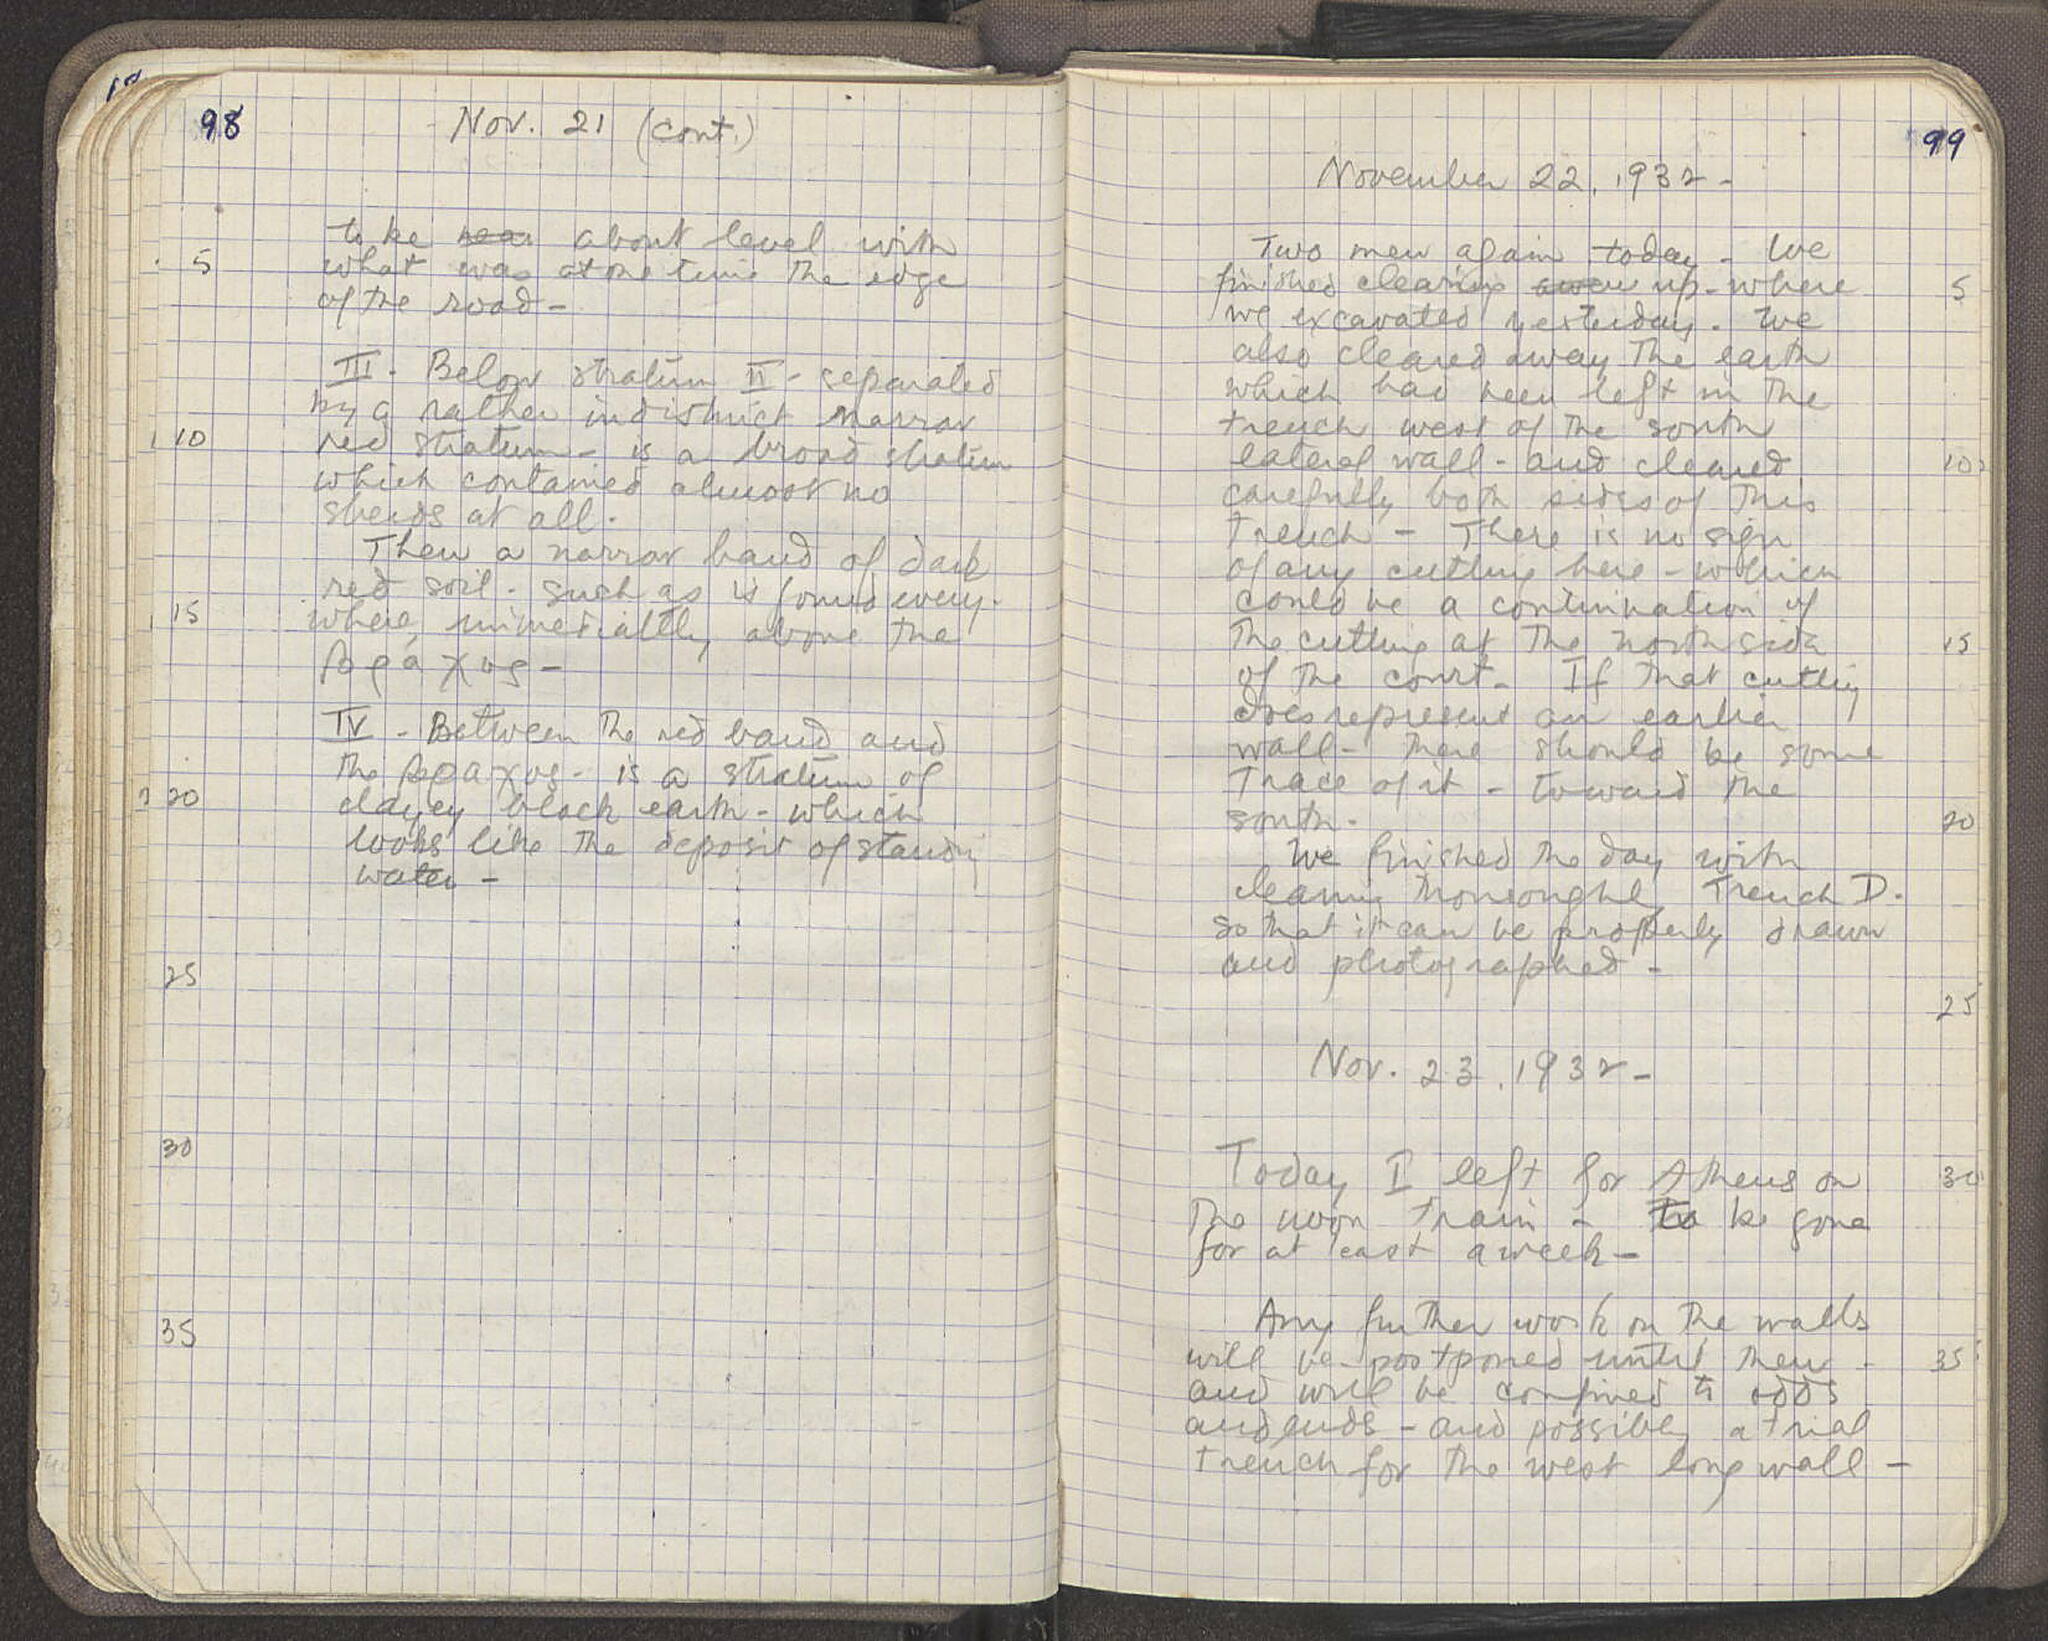 98
Nov. 21 (cont.)
to be near about level with
5
what was at one time the edge
of the road -
III - Below stratum II - separated
by a rather indistinct narrow
10
red stratum - is a broad stratum
which contained almost no
sherds at all.
Then a narrow band of dark
red soil - such as is found every-
15
where, immediatly, above the
βράχος -
IV - Between the red band and
the βράχος - is a stratum of
20
clayey black earth - which
looks like the deposit of standing
water -
25
30
35
99
November 22, 1932 -
Two men again today - We
finished clearing up - where
5
we excavated yesterday. We
also cleared away the earth
which had been left in the
trench west of the south
lateral wall - and cleared
10
carefully both sides of this
trench - There is no sign
of any cutting here - which
could be a continuation of
the cutting at the north side
15
of the court. If that cutting
does represent an earlier
wall - there should be some
trace of it - toward the
south.
20
We finished the day with
cleaning thoroughly Trench D.
so that it can be properly drawn
and photographed -
25
Nov. 23, 1932 -
Today I left for Athens on
30
the noon train - to be gone
for at least a week -
Any further work on the walls
will be postponed until then -
35
and will be confined to odds
and ends - and possibly a trial
trench for the west long wall -